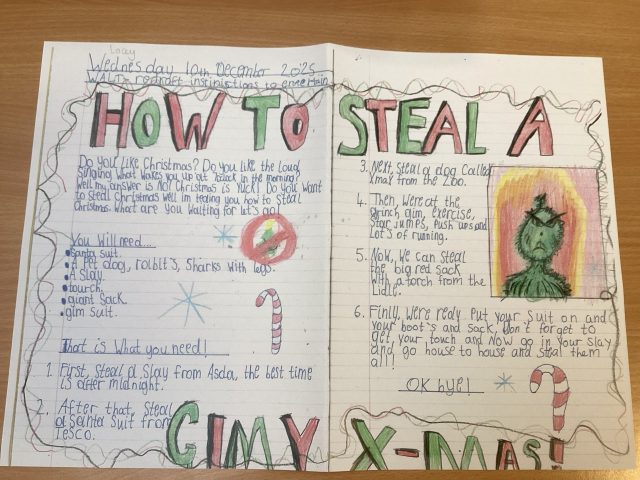 Lacey
Wednesday 10th December 2025
WALT:- redraft instructions to entertain
HOW TO
Do you like Christmas? Do you like the loud
singing what wakes you up at 7oclock in the morning?
Well my answer is NO! Christmas is Yuck! Do you want
to steal Christmas well im teling you how to steal
Christmas. What are you waiting for let's go!
You will need...
• Santa suit.
• A Pet dog, robits, sharks with legs.
• A Slay.
• tourch.
• giant Sack.
• gim suit.
That is What you need!
1. First, Steal a Slay from Asda, the best time
is after midnight.
2. After that, Steal
a Santa Suit from
Tesco.
GIMY
STEAL A
3. Next, steal a dog Called
Xmax from the Zoo.
4. Then, were at the
Grinch gim, exercise,
Star Jumps, Push ups and
lots of running.
5. Now, we can steal
the big red sack
with a torch from the
Lidle.
6. Finly, were redy. Put your suit on and
your boot's and sack, Don't forget to
get, your touch and now go in your slay
and go house to house and steal them
all!
OK bye!
X-MAS!